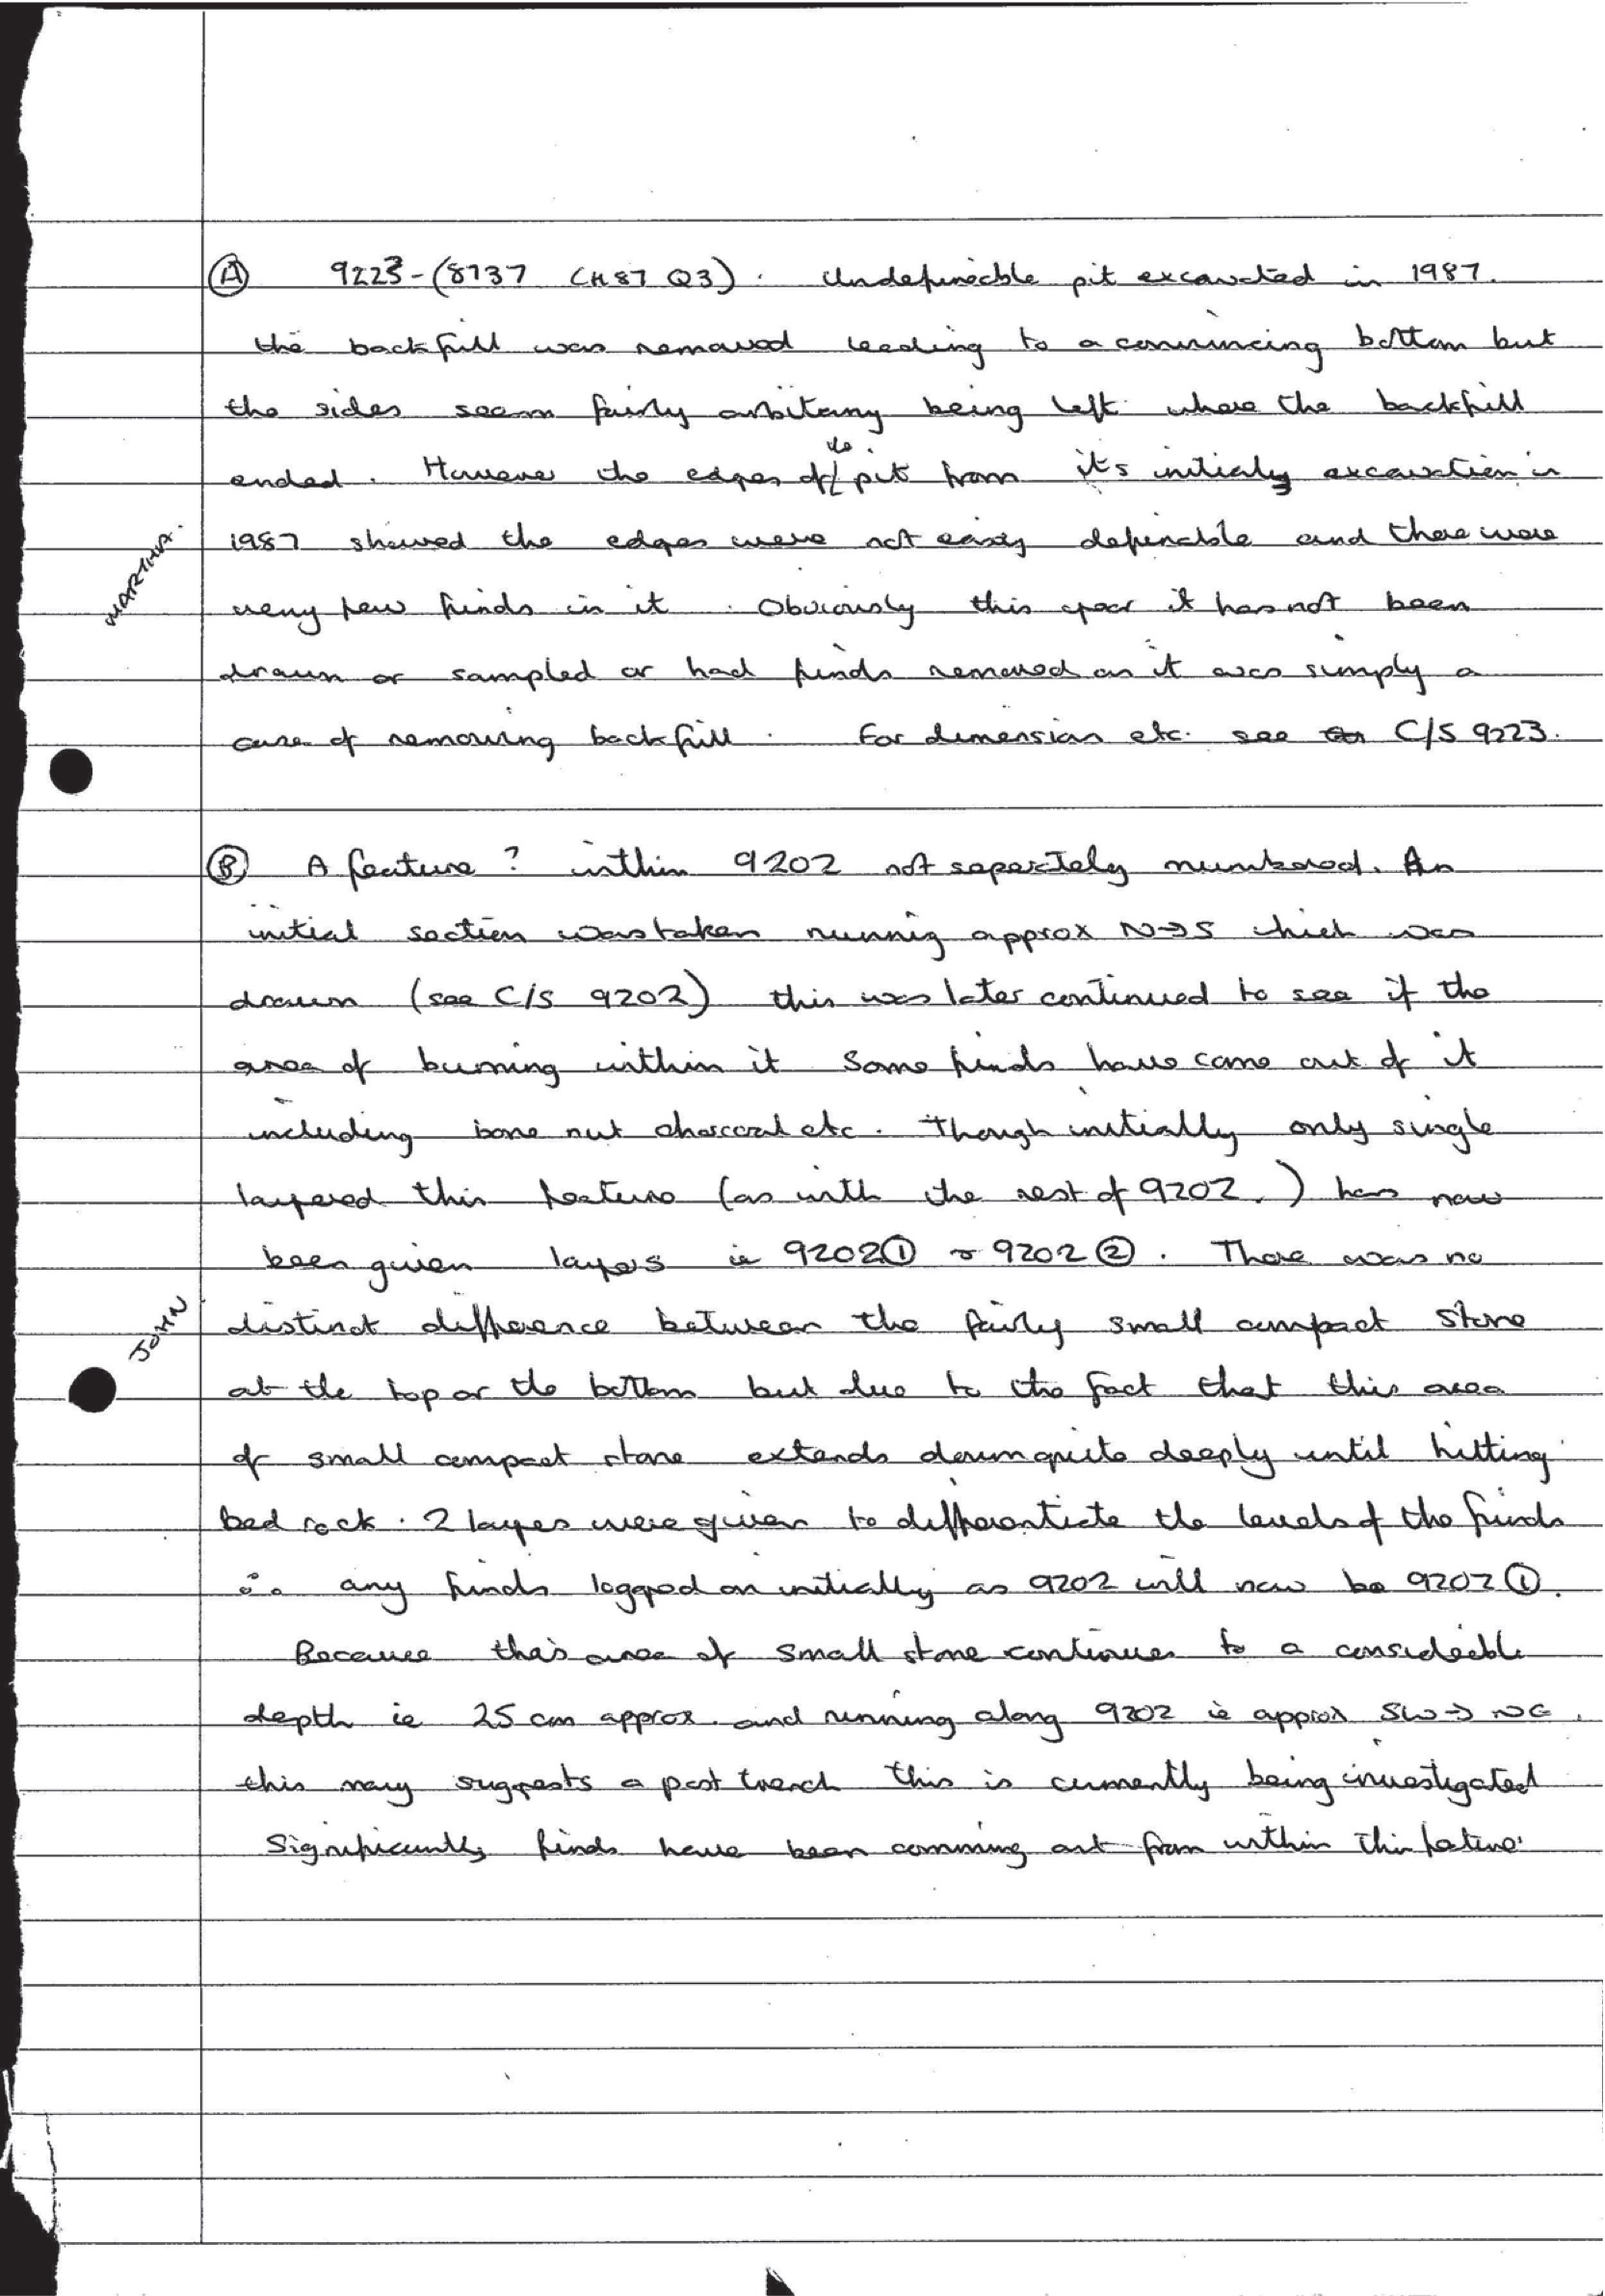 Ⓐ 9223-(8737 CH87 Q3). Undefineable pit excavated in 1987.
the backfill was removed leading to a convincing bottom but
the sides seem fairly arbitary being left where the backfill
ended. However the edges of the pit from it's initialy excavation in
MARTHA.
1987 showed the edges were not easily definable and there were
very few finds in it. Obviously this year it has not been
drawn or sampled or had finds removed as it was simply a
case of removing backfill. For dimension etc. see C/S 9223.
Ⓑ A feature? within 9202 not seperately numbered. An
initial section was taken running approx N→S which was
drawn (see C/S 9202) this was later continued to see if the
area of burning within it Some finds have come out of it
including bone nut charcoal etc. Though initially only single
layered this feature (as with the rest of 9202.) has now
been given layers ie 9202① & 9202②. There was no
JOHN
distinct difference between the fairly small compact stone
at the top or the bottom but due to the fact that this area
of small compact stone extends down quite deeply until hitting
bed rock. 2 layers were given to differentiate the levels of the finds
∴ any finds logged on initially as 9202 will now be 9202①.
Because this area of small stone continues to a considerable
depth ie 25 cm approx. and running along 9202 ie approx SW→NE.
this may suggests a post trench this is currently being investigated
Significantly finds have been comming out from within this feature.